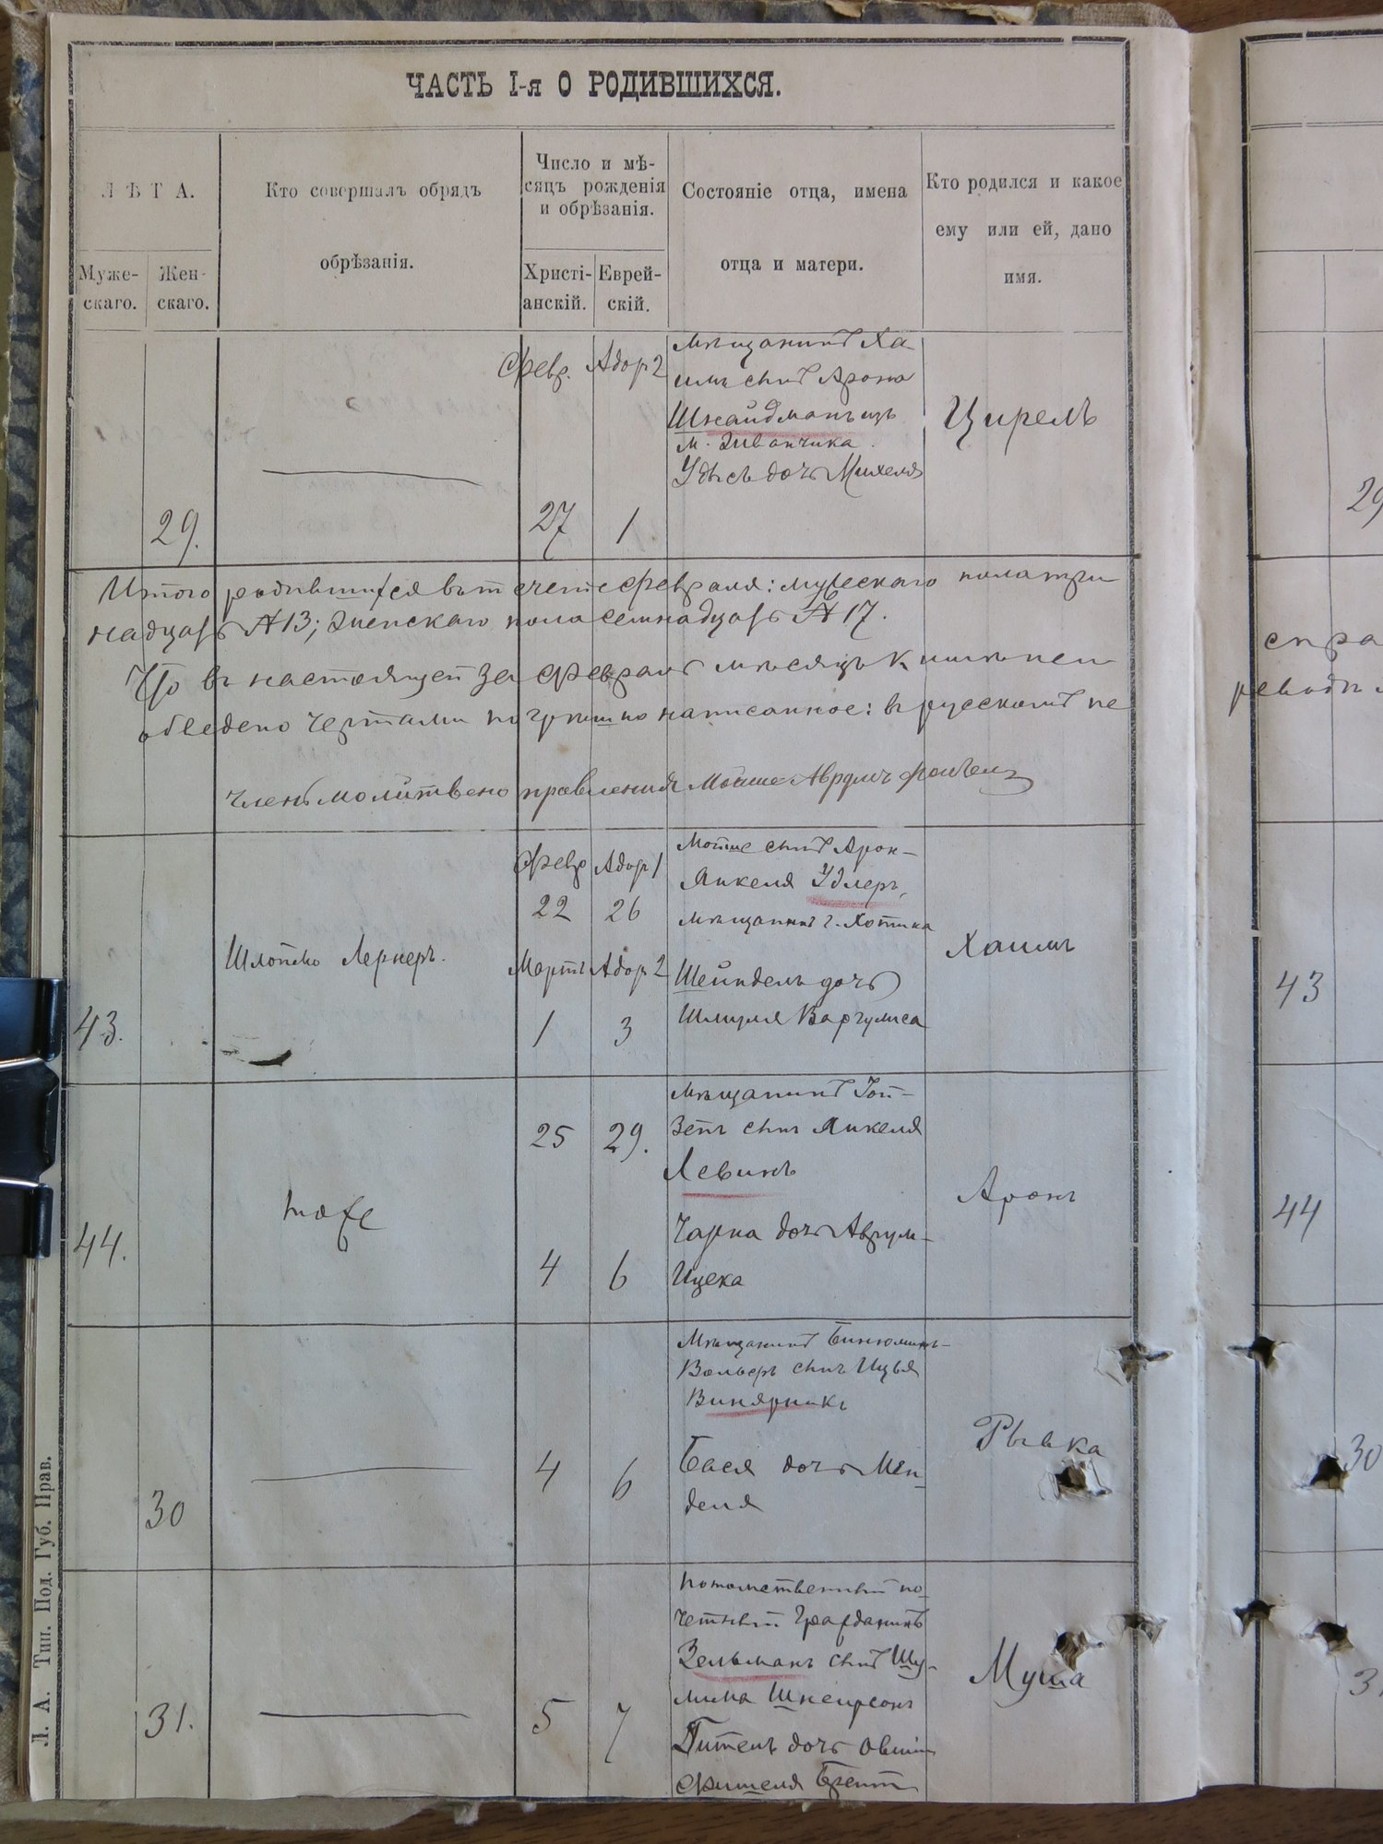 ЧАСТЬ I-я О РОДИВШИХСЯ.
Л Ѣ Т А.
Муже-
скаго.
Жен-
скаго.
Кто совершалъ обрядъ
обрѣзанія.
Число и мѣ-
сяцъ рожденія
и обрѣзанія.
Христі-
анскій.
Еврей-
скій.
Состояніе отца, имена
отца и матери.
Кто родился и какое
ему или ей, дано
имя.
29.
Февр.
27
Адор 2
1
мѣщанинъ Ха
имъ сынъ Арона
Шнайдманъ изъ
м. Живанчика.
Удысъ дочь Михеля
Цирель
29
Итого родившихся въ течете Февраля: мужескаго пола три
надцать № 13; женскаго пола семнадцать № 17.
Что въ настоящей за Февраль мѣсяцъ книжке не
обведено чертами по написанное: в русскомъ не
спра
членъ молитвено правления Мойше Аврумъ
43.
Шлойме Лернеръ.
Февр
22
Мартъ
1
Адор 1
26
Адор 2
3
Мойше сынъ Арон-
Янкеля Удлеръ,
мѣщанинъ г. Хотина
Шейндель дочь
Шмуля Варгулиса
Хаимъ
43
44.
тоже
25
4
29.
6
мѣщанинъ Іой-
зепъ сынъ Янкеля
Левинъ
Чарна дочь Аврум-
Ицека
Аронъ
44
30
4
6
Мѣщанинъ Бинюминъ-
Вольфъ сынъ Ицья
Винярникъ
Бася дочь Мен-
деля
Рывка
30
31.
5
7
потомственный по
четный гражданинъ
Зельманъ сынъ Шу-
лима Шнеирсонъ
Гитель дочь Овши
Фишеля
Муша
Л. А. Тип. Под. Губ. Прав.